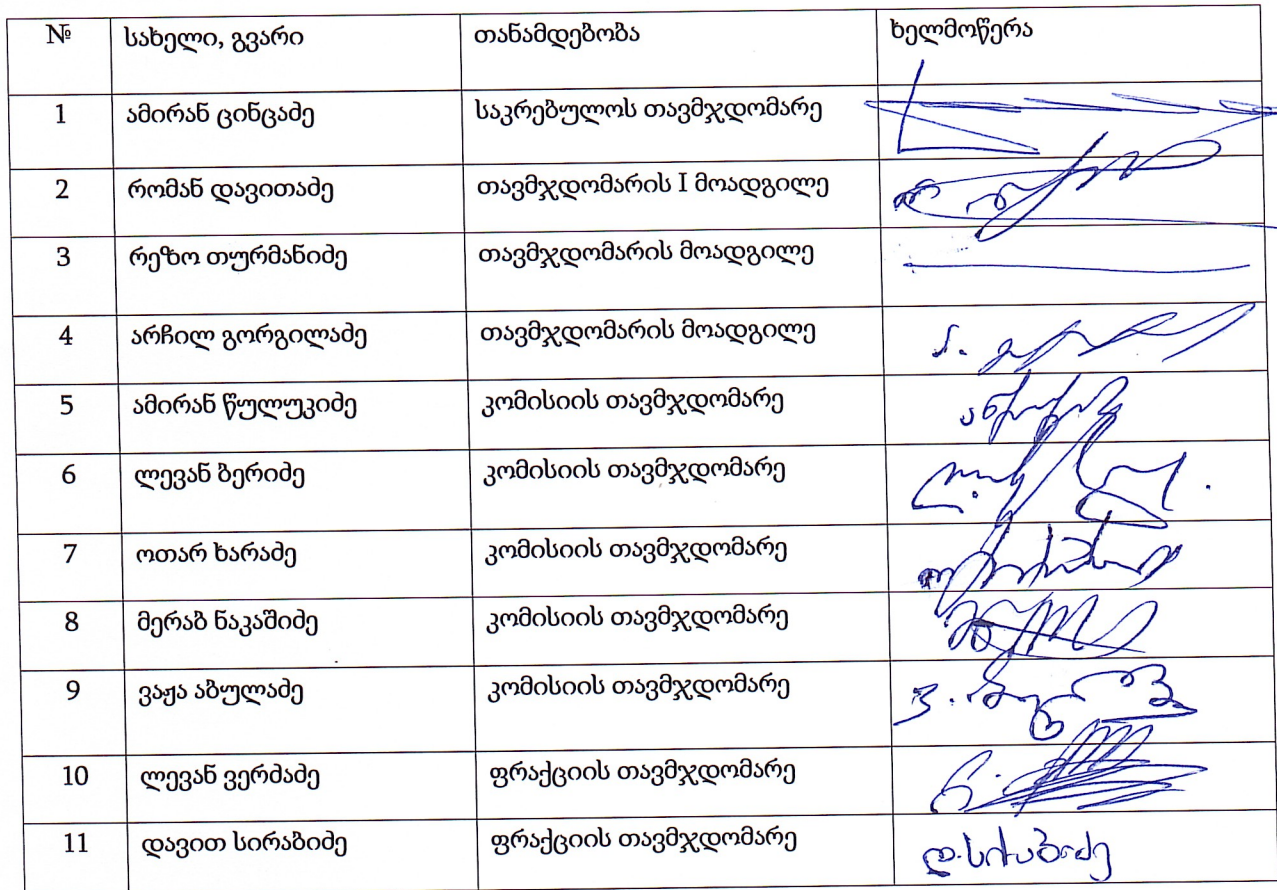 № სახელი, გვარი თანამდებობა ხელმოწერა
1 ამირან ცინცაძე საკრებულოს თავმჯდომარე
2 რომან დავითაძე თავმჯდომარის I მოადგილე
3 რეზო თურმანიძე თავმჯდომარის მოადგილე
4 არჩილ გორგილაძე თავმჯდომარის მოადგილე
5 ამირან წულუკიძე კომისიის თავმჯდომარე
6 ლევან ბერიძე კომისიის თავმჯდომარე
7 ოთარ ხარაძე კომისიის თავმჯდომარე
8 მერაბ ნაკაშიძე კომისიის თავმჯდომარე
9 ვაჟა აბულაძე კომისიის თავმჯდომარე
10 ლევან ვერძაძე ფრაქციის თავმჯდომარე
11 დავით სირაბიძე ფრაქციის თავმჯდომარე დ. სირაბიძე